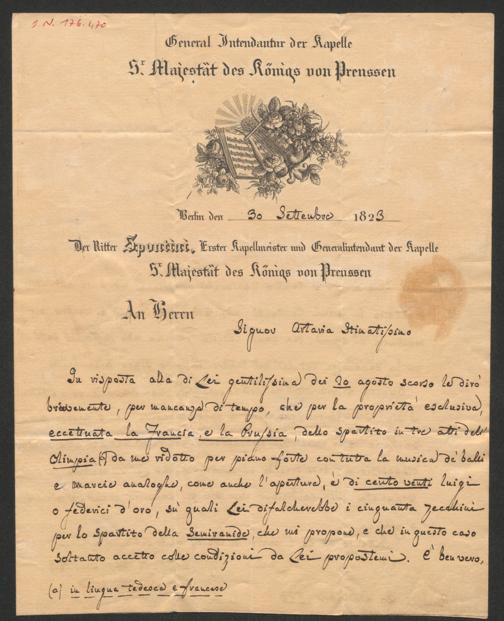 I. N. 176.470
General Intendantur der Kapelle
Sr. Majestät des Königs von Preussen
Berlin den 30 Settembre 1823
Der Ritter Spontini, Erster Kapellmeister und Generalintendant der Kapelle
Sr. Majestät des Königs von Preussen
An Herrn
Signor Artaria Stimatissimo
In risposta alla di Lei gentilissima dei 20 agosto scorso le dirò
brevemente, per mancanza di tempo, che per la proprietà esclusiva,
eccettuata la Francia, e la Prussia, dello spartito in tre atti dell'
Olimpia (a) da me ridotto per piano forte con tutta la musica de' balli
e marcie analoghe, come anche l'apertura, è di cento venti luigi
o federici d'oro, su' quali Lei difalcherebbe i cinquanta zecchini
per lo spartito della Semiramide, che mi propone, e che in questo caso
soltanto accetto colle condizioni da Lei propostemi. È ben vero,
(a) in lingua tedesca e francese